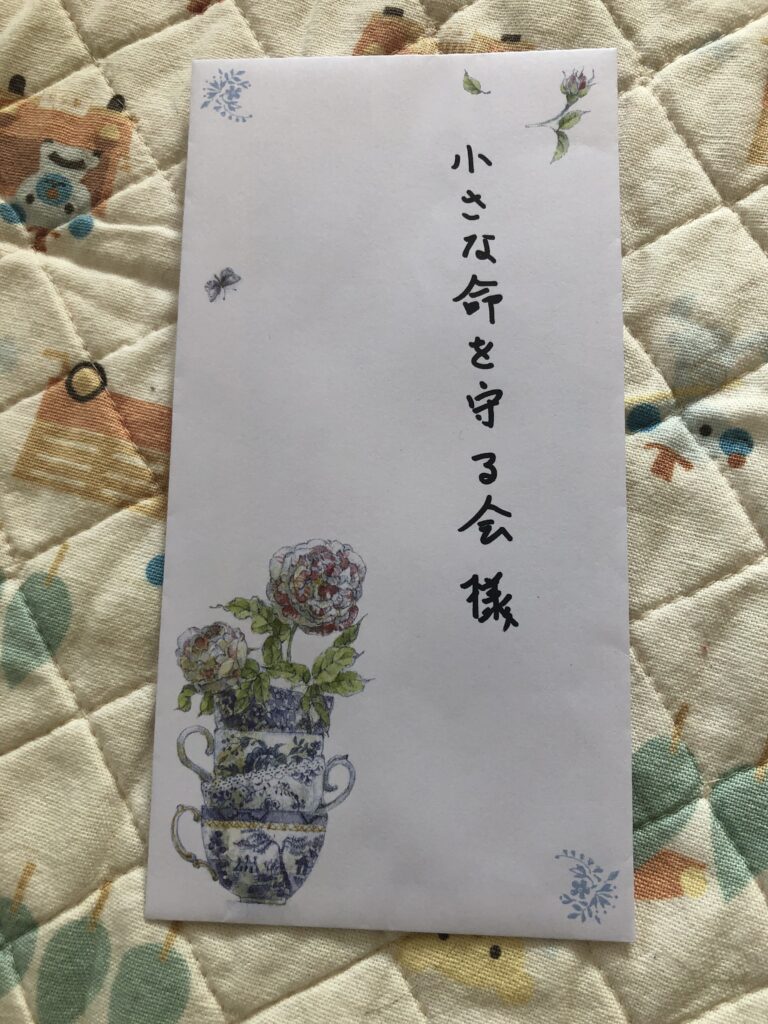 小さな命を守る会 様